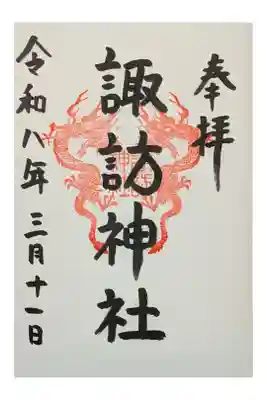 奉拝
諏訪神社
令和八年 三月十一日